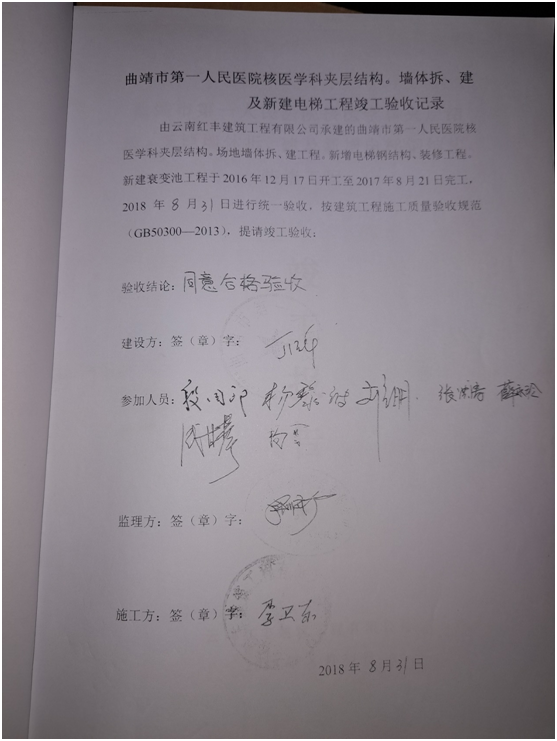 曲靖市第一人民医院核医学科夹层结构。墙体拆、建
及新建电梯工程竣工验收记录
由云南红丰建筑工程有限公司承建的曲靖市第一人民医院核
医学科夹层结构。场地墙体拆、建工程。新增电梯钢结构。装修工程。
新建衰变池工程于 2016 年 12 月 17 日开工至 2017 年 8 月 21 日完工,
2018 年 8 月 31 日进行统一验收，按建筑工程施工质量验收规范
（GB50300—2013），提请竣工验收：
验收结论：同意合格验收
建设方：签（章）字：
参加人员：
监理方：签（章）字：
施工方：签（章）字：李卫东
2018 年 8 月 31 日